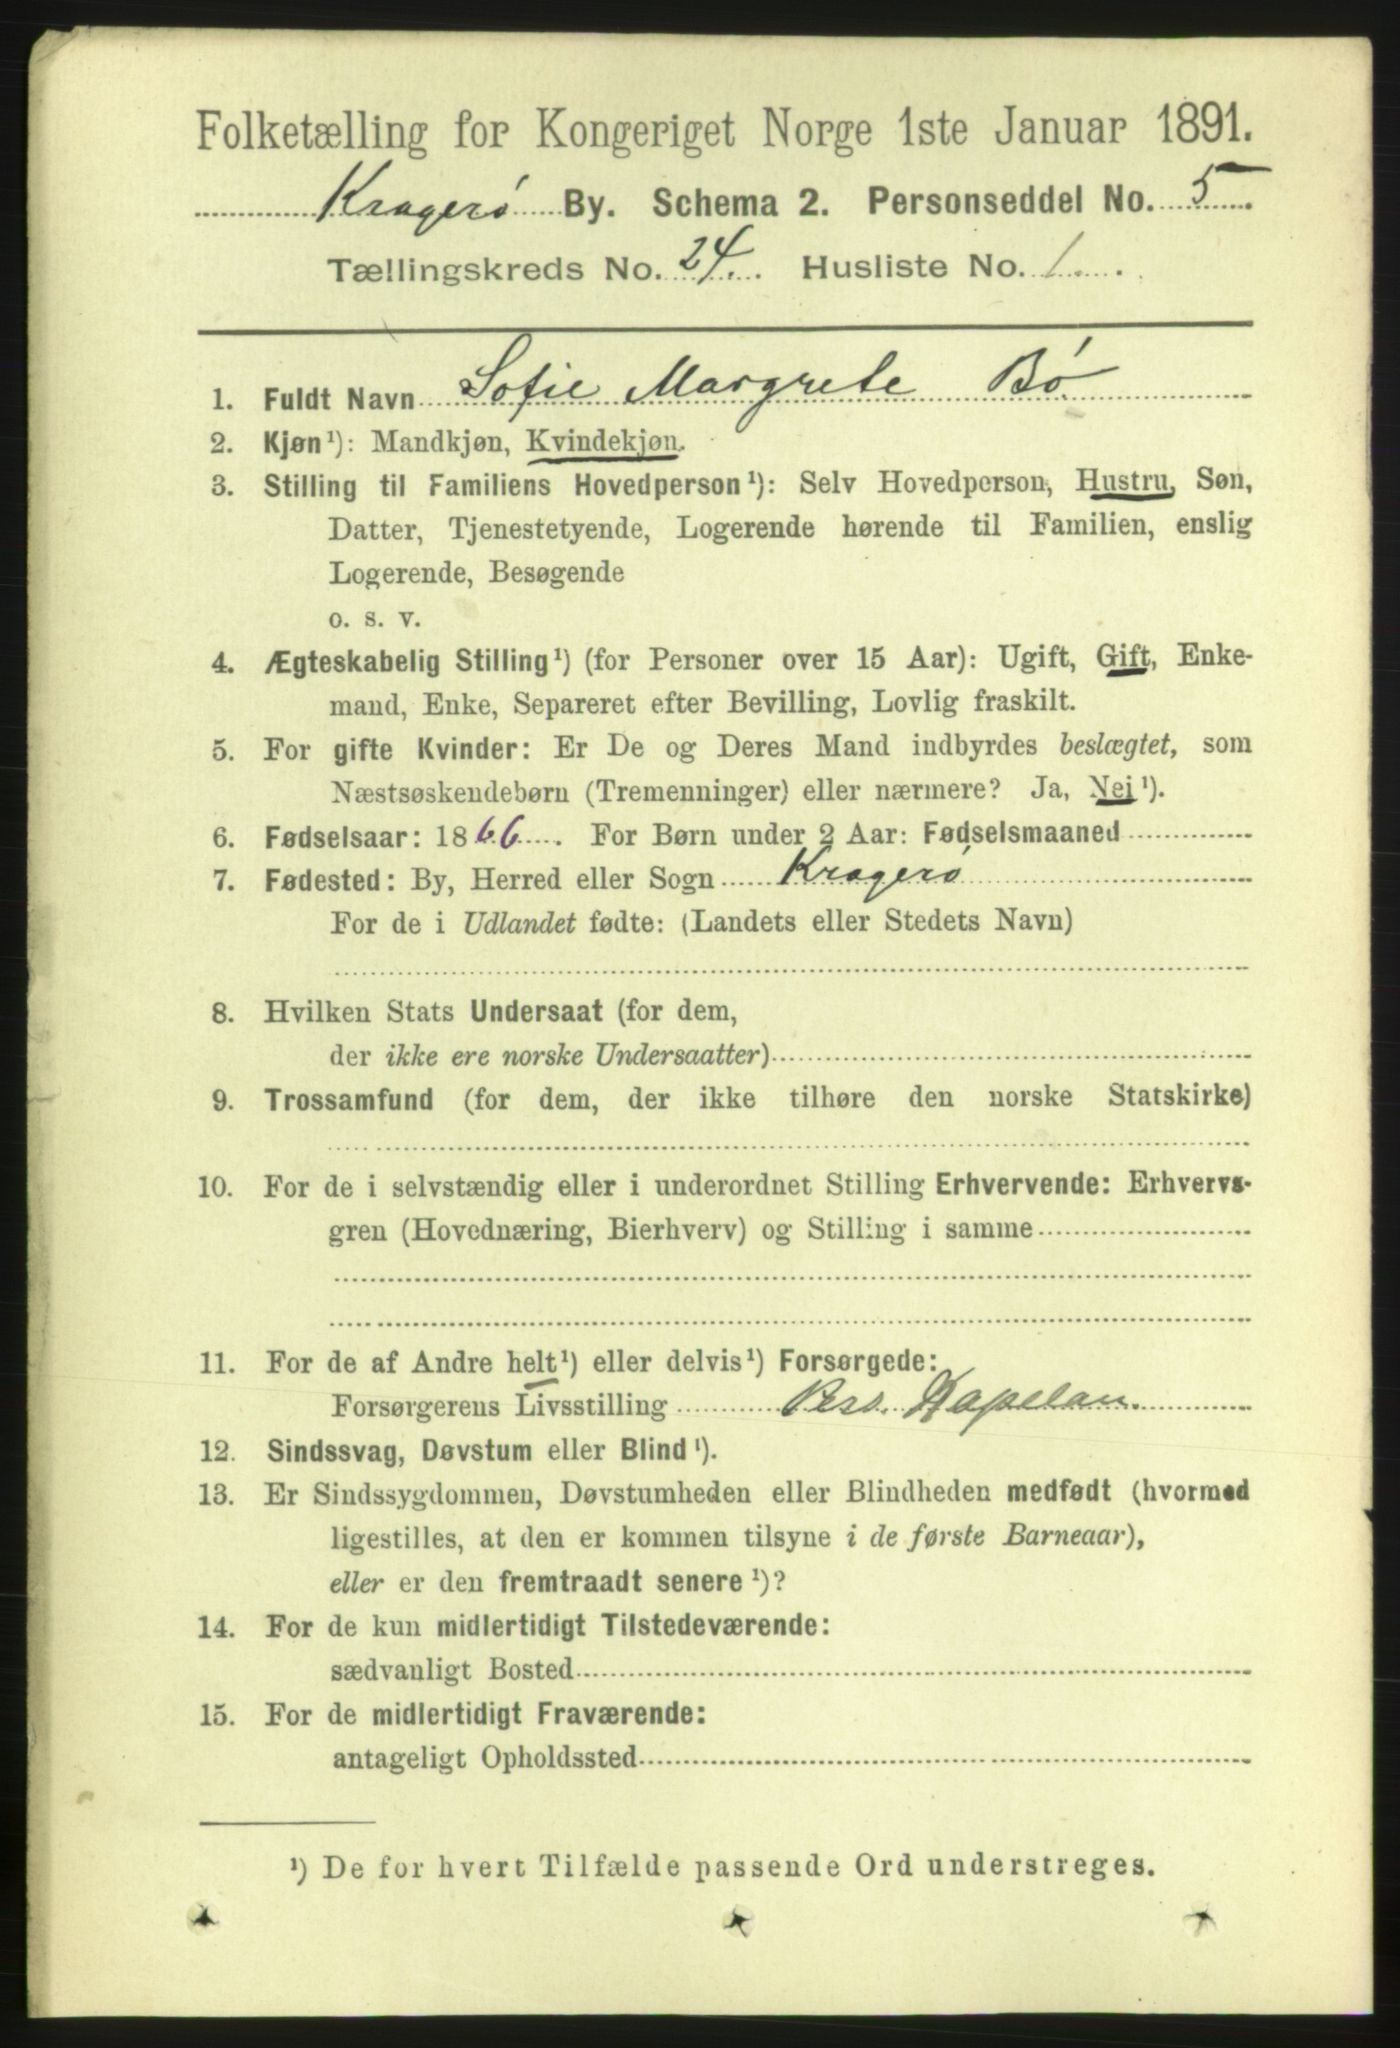 Folketælling for Kongeriget Norge 1ste Januar 1891.
Kragerø By. Schema 2. Personseddel No. 5
Tællingskreds No. 24. Husliste No. 1
1. Fuldt Navn Sofie Margrete Bø
2. Kjøn¹): Mandkjøn, Kvindekjøn.
3. Stilling til Familiens Hovedperson¹): Selv Hovedperson, Hustru, Søn,
Datter, Tjenestetyende, Logerende hørende til Familien, enslig
Logerende, Besøgende
o. s. v.
4. Ægteskabelig Stilling¹) (for Personer over 15 Aar): Ugift, Gift, Enke-
mand, Enke, Separeret efter Bevilling, Lovlig fraskilt.
5. For gifte Kvinder: Er De og Deres Mand indbyrdes beslægtet, som
Næstsøskendebørn (Tremenninger) eller nærmere? Ja, Nei¹).
6. Fødselsaar: 1866. For Børn under 2 Aar: Fødselsmaaned
7. Fødested: By, Herred eller Sogn Kragerø
For de i Udlandet fødte: (Landets eller Stedets Navn)
8. Hvilken Stats Undersaat (for dem,
der ikke ere norske Undersaatter)
9. Trossamfund (for dem, der ikke tilhøre den norske Statskirke)
10. For de i selvstændig eller i underordnet Stilling Erhvervende: Erhvervs-
gren (Hovednæring, Bierhverv) og Stilling i samme
11. For de af Andre helt¹) eller delvis¹) Forsørgede:
Forsørgerens Livsstilling Pers. Kapelan.
12. Sindssvag, Døvstum eller Blind¹).
13. Er Sindssygdommen, Døvstumheden eller Blindheden medfødt (hvormed
ligestilles, at den er kommen tilsyne i de første Barneaar),
eller er den fremtraadt senere¹)?
14. For de kun midlertidigt Tilstedeværende:
sædvanligt Bosted
15. For de midlertidigt Fraværende:
antageligt Opholdssted
¹) De for hvert Tilfælde passende Ord understreges.